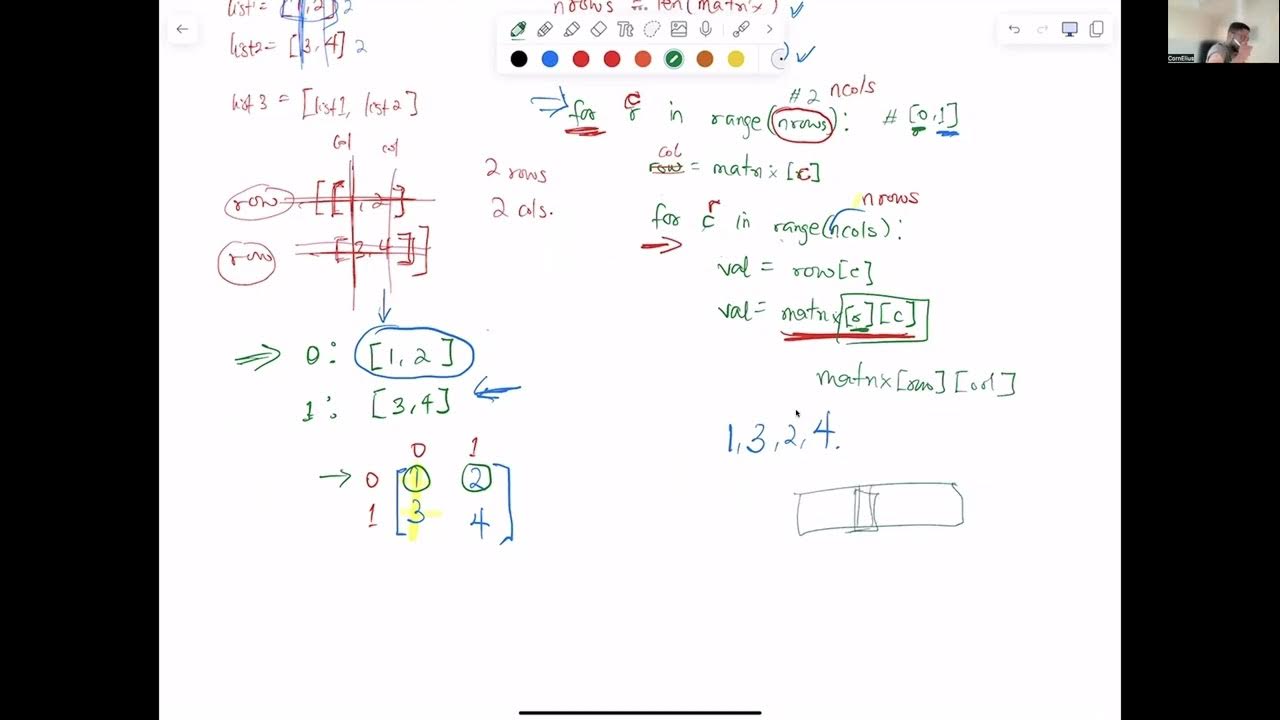 list1 = [1,2] 2
list2 = [3,4] 2
list3 = [list1, list2]
col col
row [[1,2]
row [3,4]]
2 rows
2 cols.
0: [1,2]
1: [3,4]
0 1
0 1 2
1 3 4
nrows = len(matrix) ✓
) ✓
#2 ncols
for c in range(nrows): # [0,1]
col
row = matrix[c]
nrows
for r in range(ncols):
val = row[c]
val = matrix[r][c]
matrix[row][col]
1,3,2,4.
Tr
CornElius